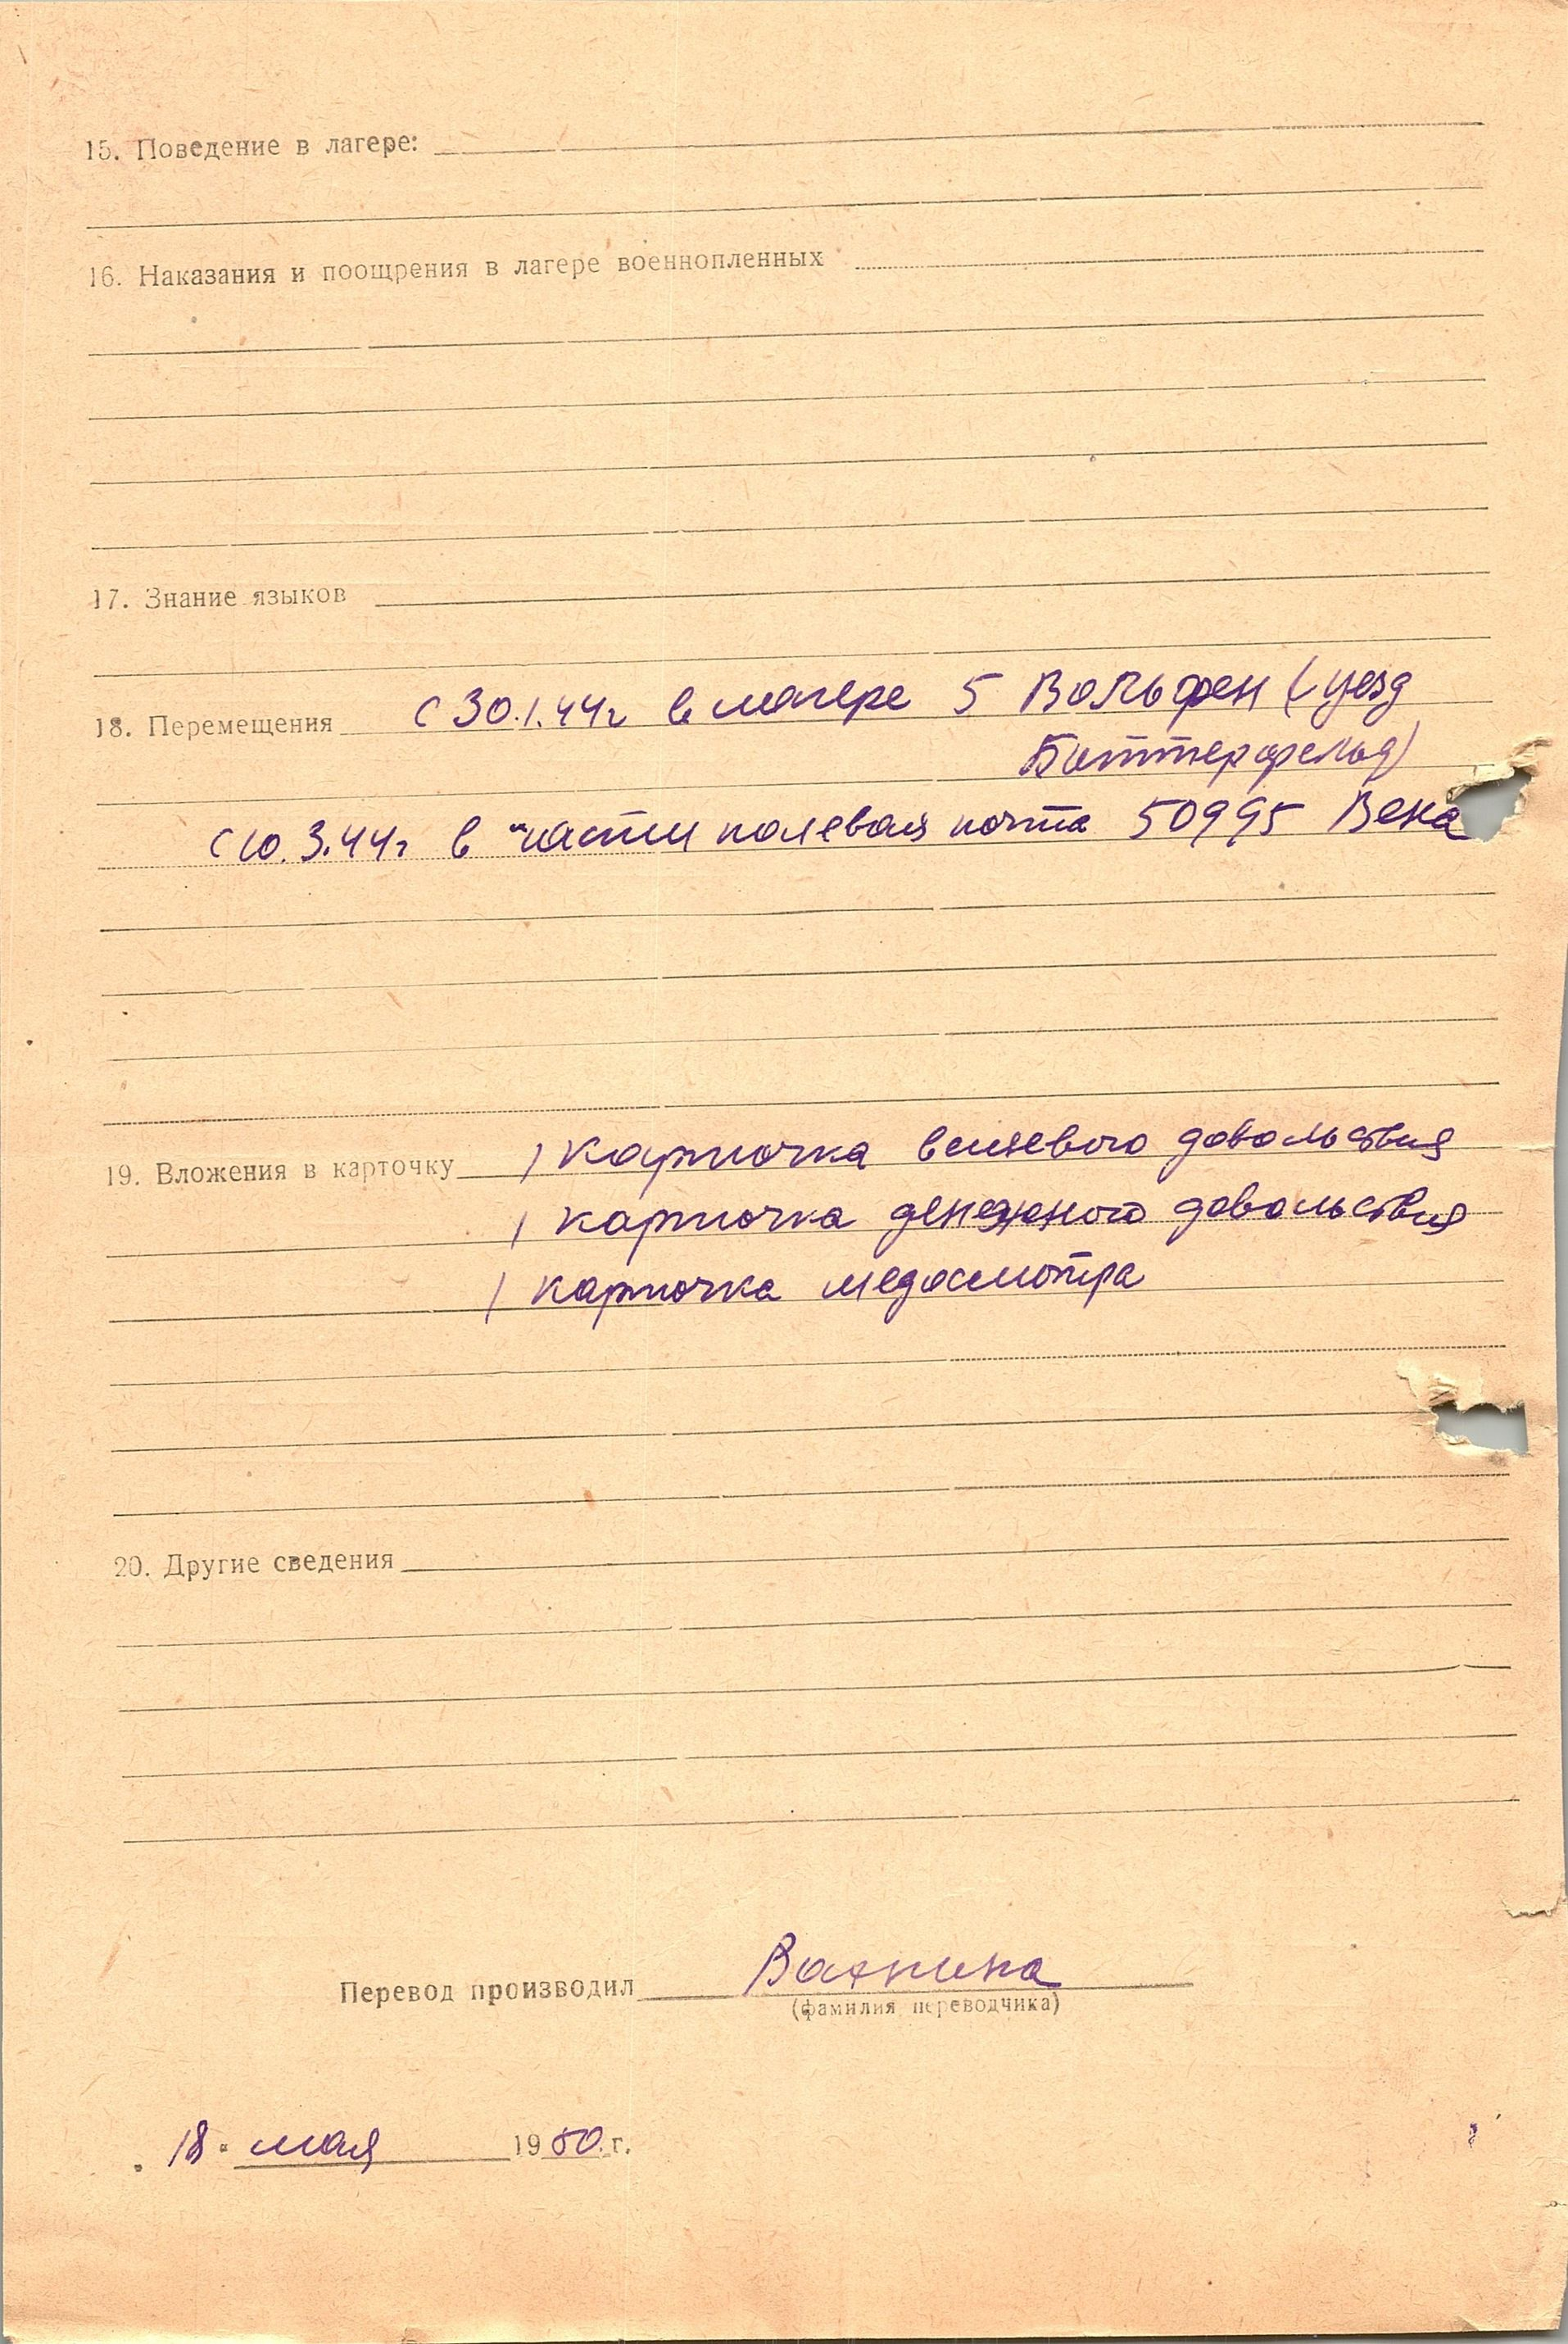 15. Поведение в лагере:
16. Наказания и поощрения в лагере военнопленных
17. Знание языков
18. Перемещения с 30.1.44г в лагере 5 Вольфен (уезд
Биттерфельд)
с 10.3.44г в части полевая почта 50995 Вена
19. Вложения в карточку 1 карточка вещевого довольствия
1 карточка денежного довольствия
1 карточка медосмотра
20. Другие сведения
Перевод производил
(фамилия переводчика)
18 мая 1950 г.